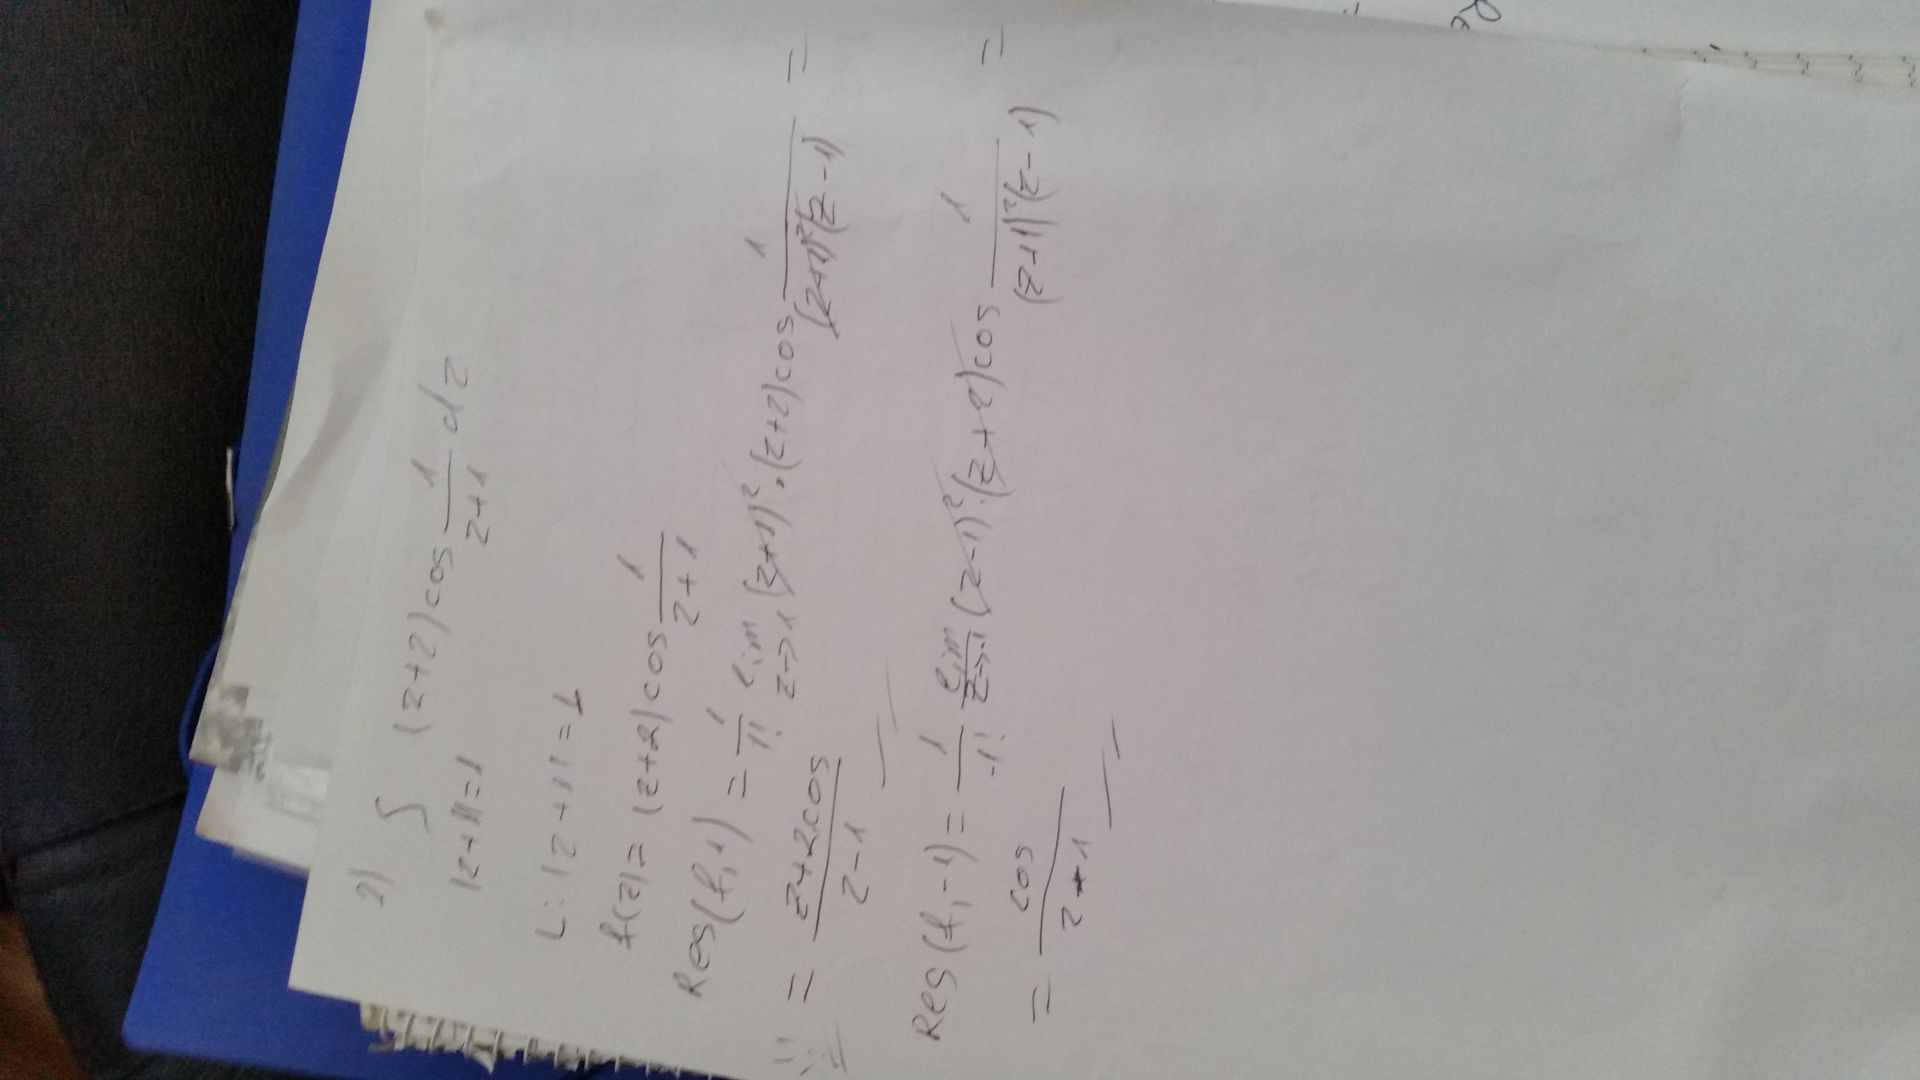 2) ∫ (z+2) cos 1/(z+1) dz
|z+1|=1
L: |z+1|=1
f(z) = (z+2) cos 1/(z+1)
Res(f,1) = 1/1! lim z→1 (z+1)². (z+2) cos 1/((z+1)²(z-1)) =
= z+2cos/(z-1)
Res(f,-1) = 1/-1! lim z→-1 (z-1)².(z+2) cos 1/((z+1)²(z-1)) =
= cos/(z+1)